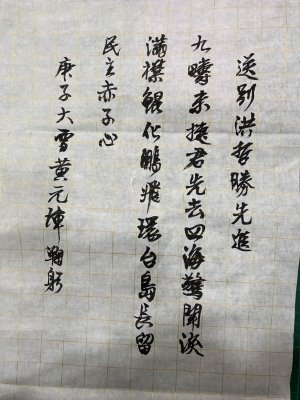 送別洪哲勝先進
九疇未捷君先去四海驚聞淚
滿襟鯤化鵬飛環台島長留
民主赤子心
庚子大雪黃元璋鞠躬